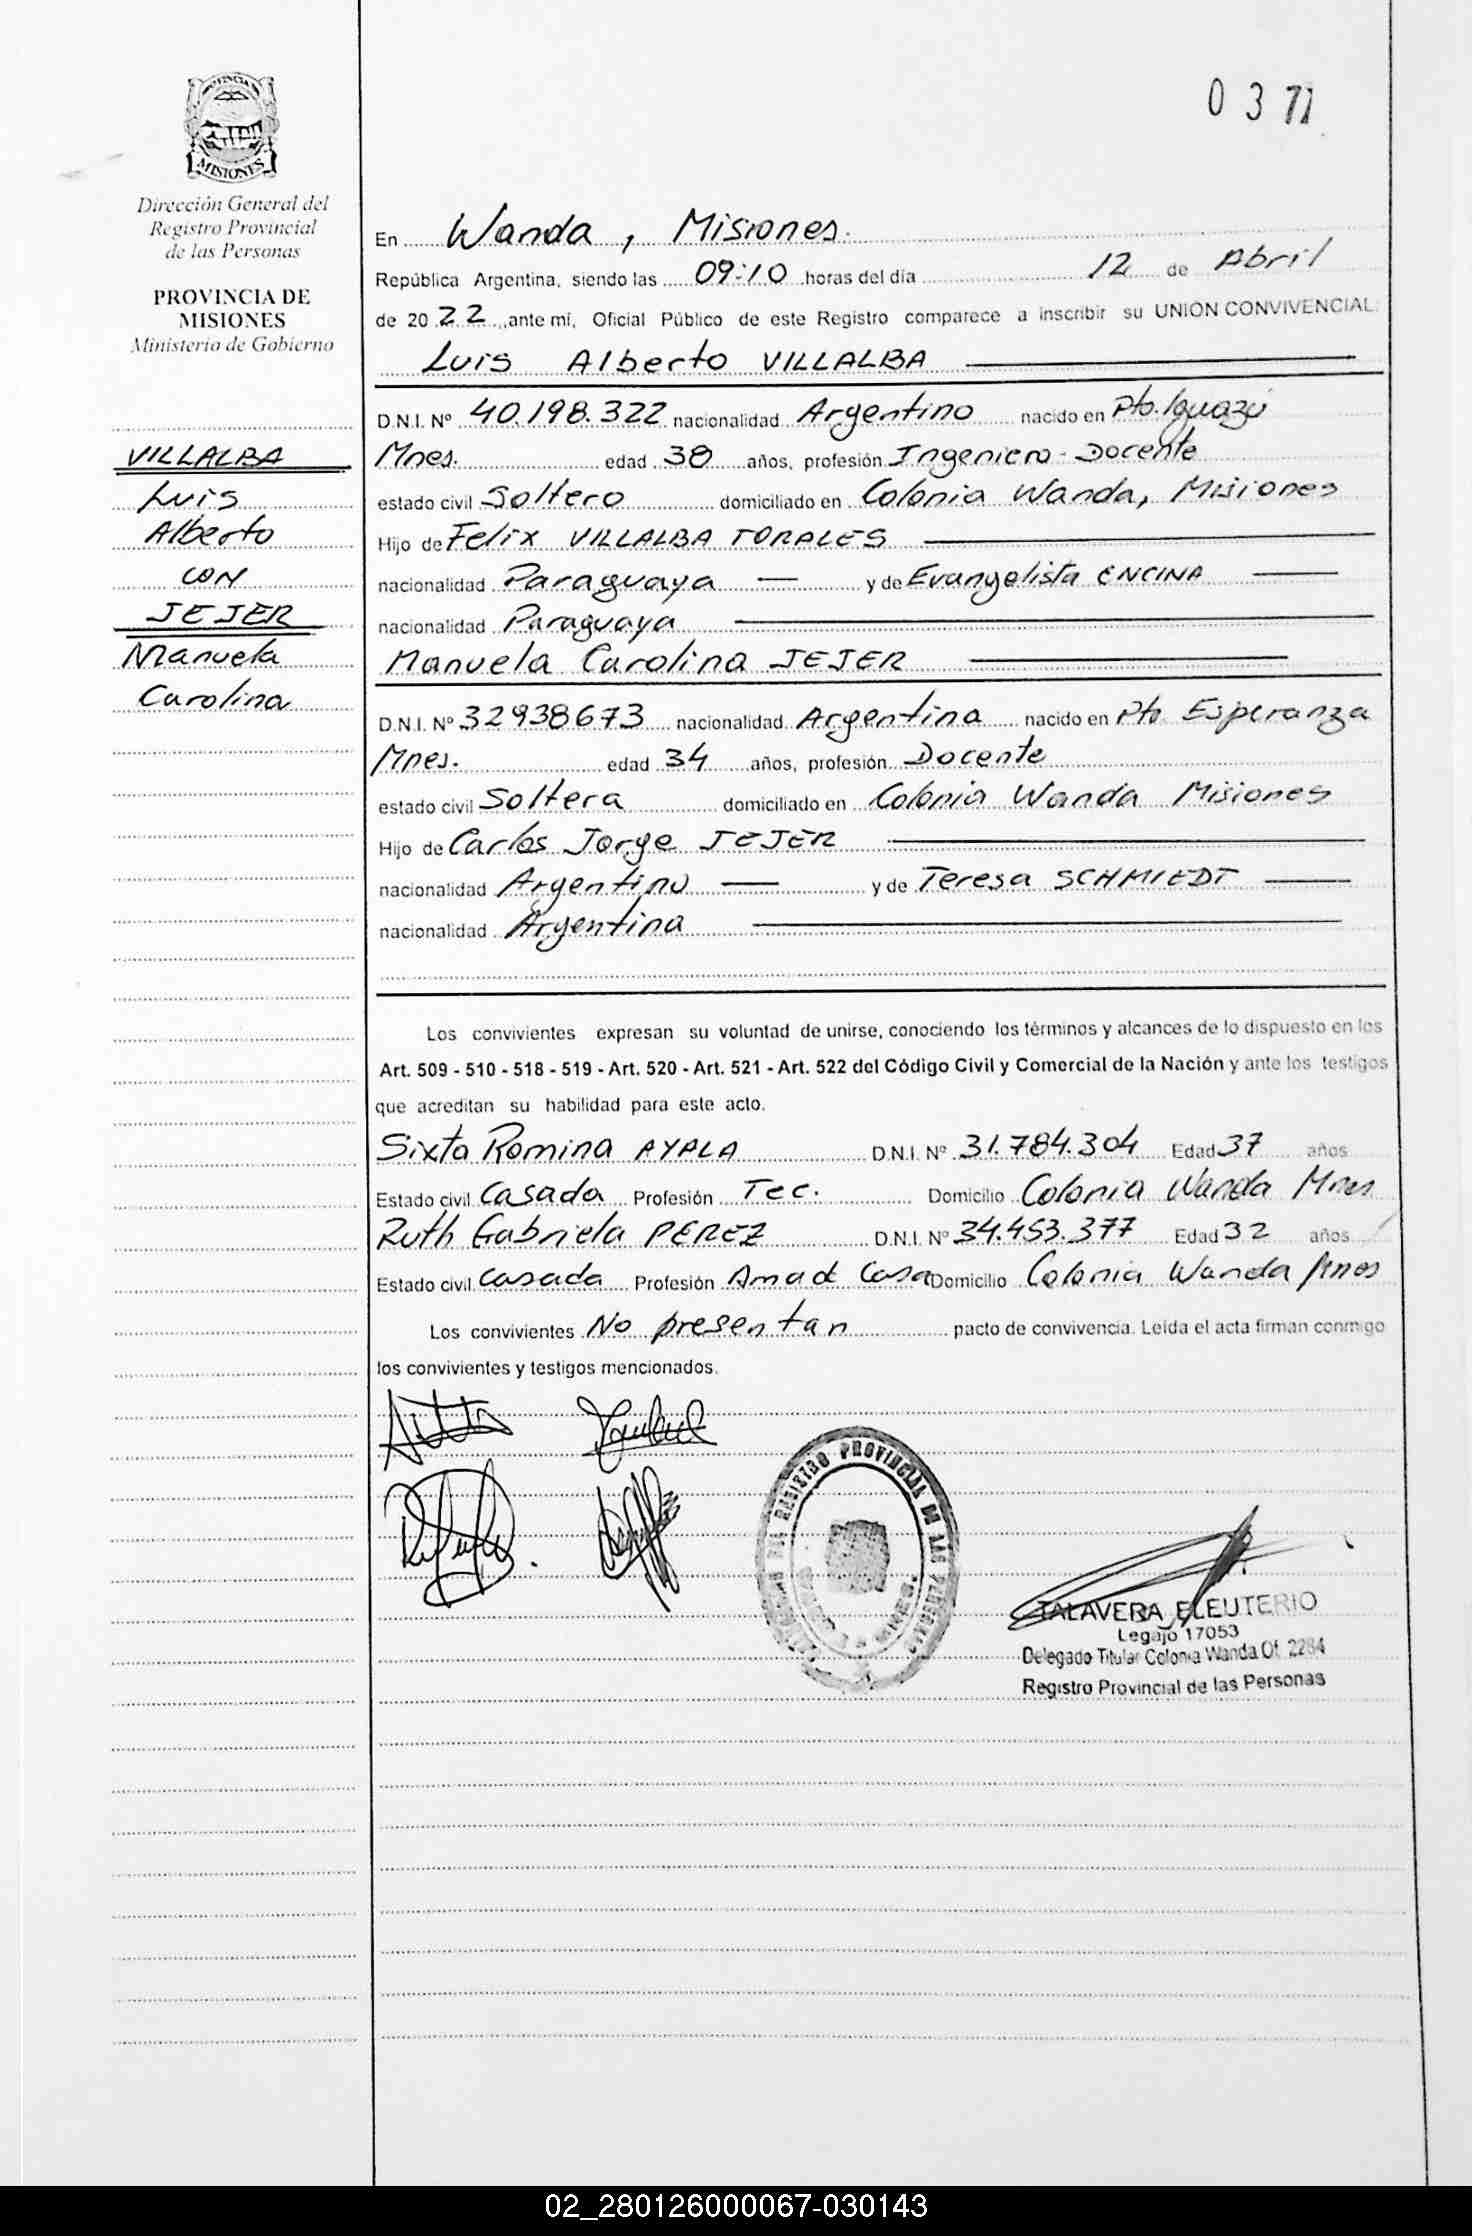 0 3 71
PROVINCIA
MISIONES
Dirección General del
Registro Provincial
de las Personas
PROVINCIA DE
MISIONES
Ministerio de Gobierno
VILLALBA
Luis
Alberto
CON
JEJER
Manuela
Carolina
En Wanda, Misiones.
República Argentina, siendo las 09:10 horas del día 12 de Abril
de 20 22, ante mi, Oficial Público de este Registro comparece a inscribir su UNION CONVIVENCIAL:
Luis Alberto VILLALBA
D.N.I. Nº 40.198.322 nacionalidad Argentino nacido en Pto. Iguazú
Mnes. edad 38 años, profesión Ingeniero - Docente
estado civil Soltero domiciliado en Colonia Wanda, Misiones
Hijo de Felix VILLALBA TORALES
nacionalidad Paraguaya y de Evangelista ENCINA
nacionalidad Paraguaya
Manuela Carolina JEJER
D.N.I. Nº 32938673 nacionalidad Argentina nacido en Pto Esperanza
Mnes. edad 34 años, profesión Docente
estado civil Soltera domiciliado en Colonia Wanda Misiones
Hijo de Carlos Jorge JEJER
nacionalidad Argentino y de Teresa SCHMIEDT
nacionalidad Argentina
Los convivientes expresan su voluntad de unirse, conociendo los términos y alcances de lo dispuesto en los
Art. 509 - 510 - 518 - 519 - Art. 520 - Art. 521 - Art. 522 del Código Civil y Comercial de la Nación y ante los testigos
que acreditan su habilidad para este acto.
Sixta Romina AYALA D.N.I. Nº 31.784.304 Edad 37 años
Estado civil Casada Profesión Tec. Domicilio Colonia Wanda Mnes
Ruth Gabriela PEREZ D.N.I. Nº 34.453.377 Edad 32 años
Estado civil Casada Profesión Ama d Casa Domicilio Colonia Wanda Mnes
Los convivientes No presentan pacto de convivencia. Leída el acta firman conmigo
los convivientes y testigos mencionados.
REGISTRO PROVINCIAL DE LAS PERSONAS
TALAVERA ELEUTERIO
Legajo 17053
Delegado Titular Colonia Wanda Of. 2284
Registro Provincial de las Personas
02_280126000067-030143